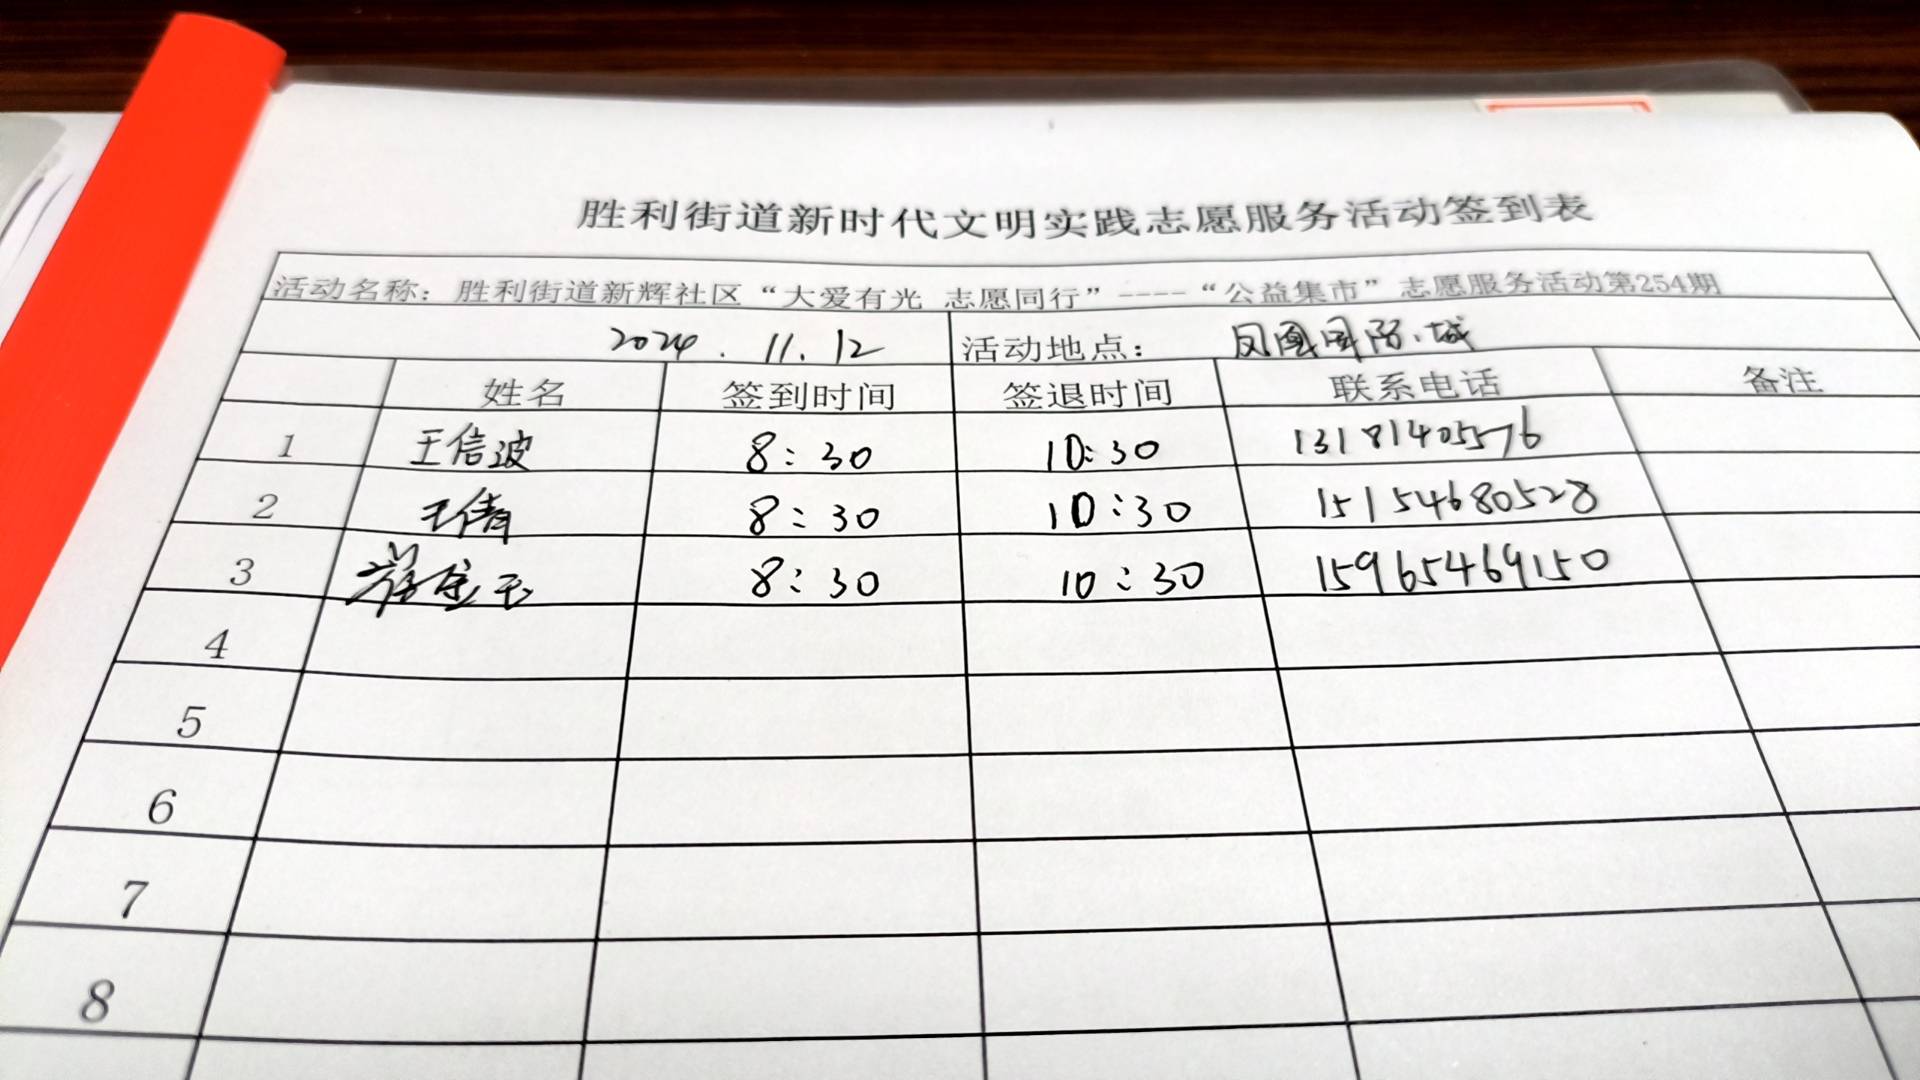 胜利街道新时代文明实践志愿服务活动签到表
活动名称：胜利街道新辉社区“大爱有光 志愿同行”----“公益集市”志愿服务活动第254期
2024.11.12 活动地点： 凤凰国际城
姓名 签到时间 签退时间 联系电话 备注
1 王信波 8:30 10:30 13181405576
2 王倩 8:30 10:30 15154680528
3 8:30 10:30 15965469150
4
5
6
7
8